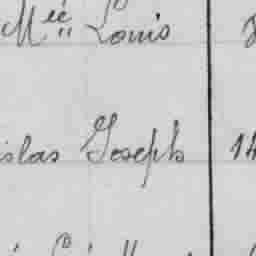 M.ié Louis
islas Joseph 14